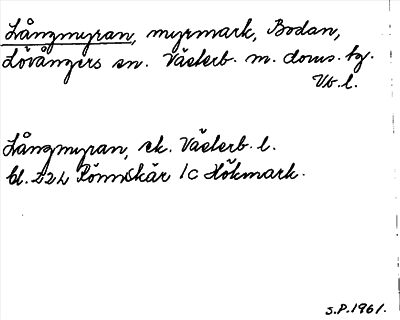 Långmyran, myrmark, Bodan,
Lövångers sn. Västerb. m. doms. tg.
Vb. l.
Långmyran, ek. Västerb. l.
bl. 22L Rönnskär 1c Hökmark.
S.P. 1961.